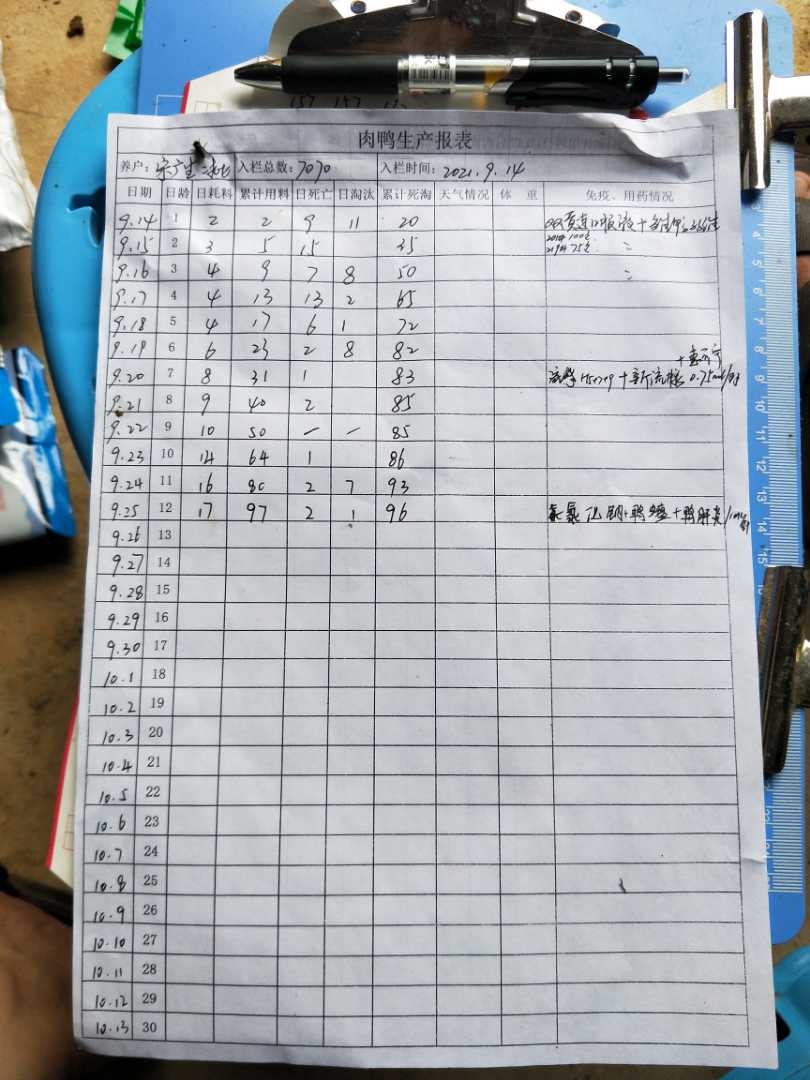 肉鸭生产报表
养户: 入栏总数:7070 入栏时间:2021.9.14
日期 日龄 日耗料 累计用料 日死亡 日淘汰 累计死淘 天气情况 体 重 免疫、用药情况
9.14 1 2 2 9 11 20 双黄连口服液+
9.15 2 3 5 15 35
9.16 3 4 9 7 8 50
9.17 4 4 13 13 2 65
9.18 5 4 17 6 1 72
9.19 6 6 23 2 8 82
9.20 7 8 31 1 83
9.21 8 9 40 2 85
9.22 9 10 50 — — 85
9.23 10 14 64 1 86
9.24 11 16 80 2 7 93
9.25 12 17 97 2 1 96
9.26 13
9.27 14
9.28 15
9.29 16
9.30 17
10.1 18
10.2 19
10.3 20
10.4 21
10.5 22
10.6 23
10.7 24
10.8 25
10.9 26
10.10 27
10.11 28
10.12 29
10.13 30